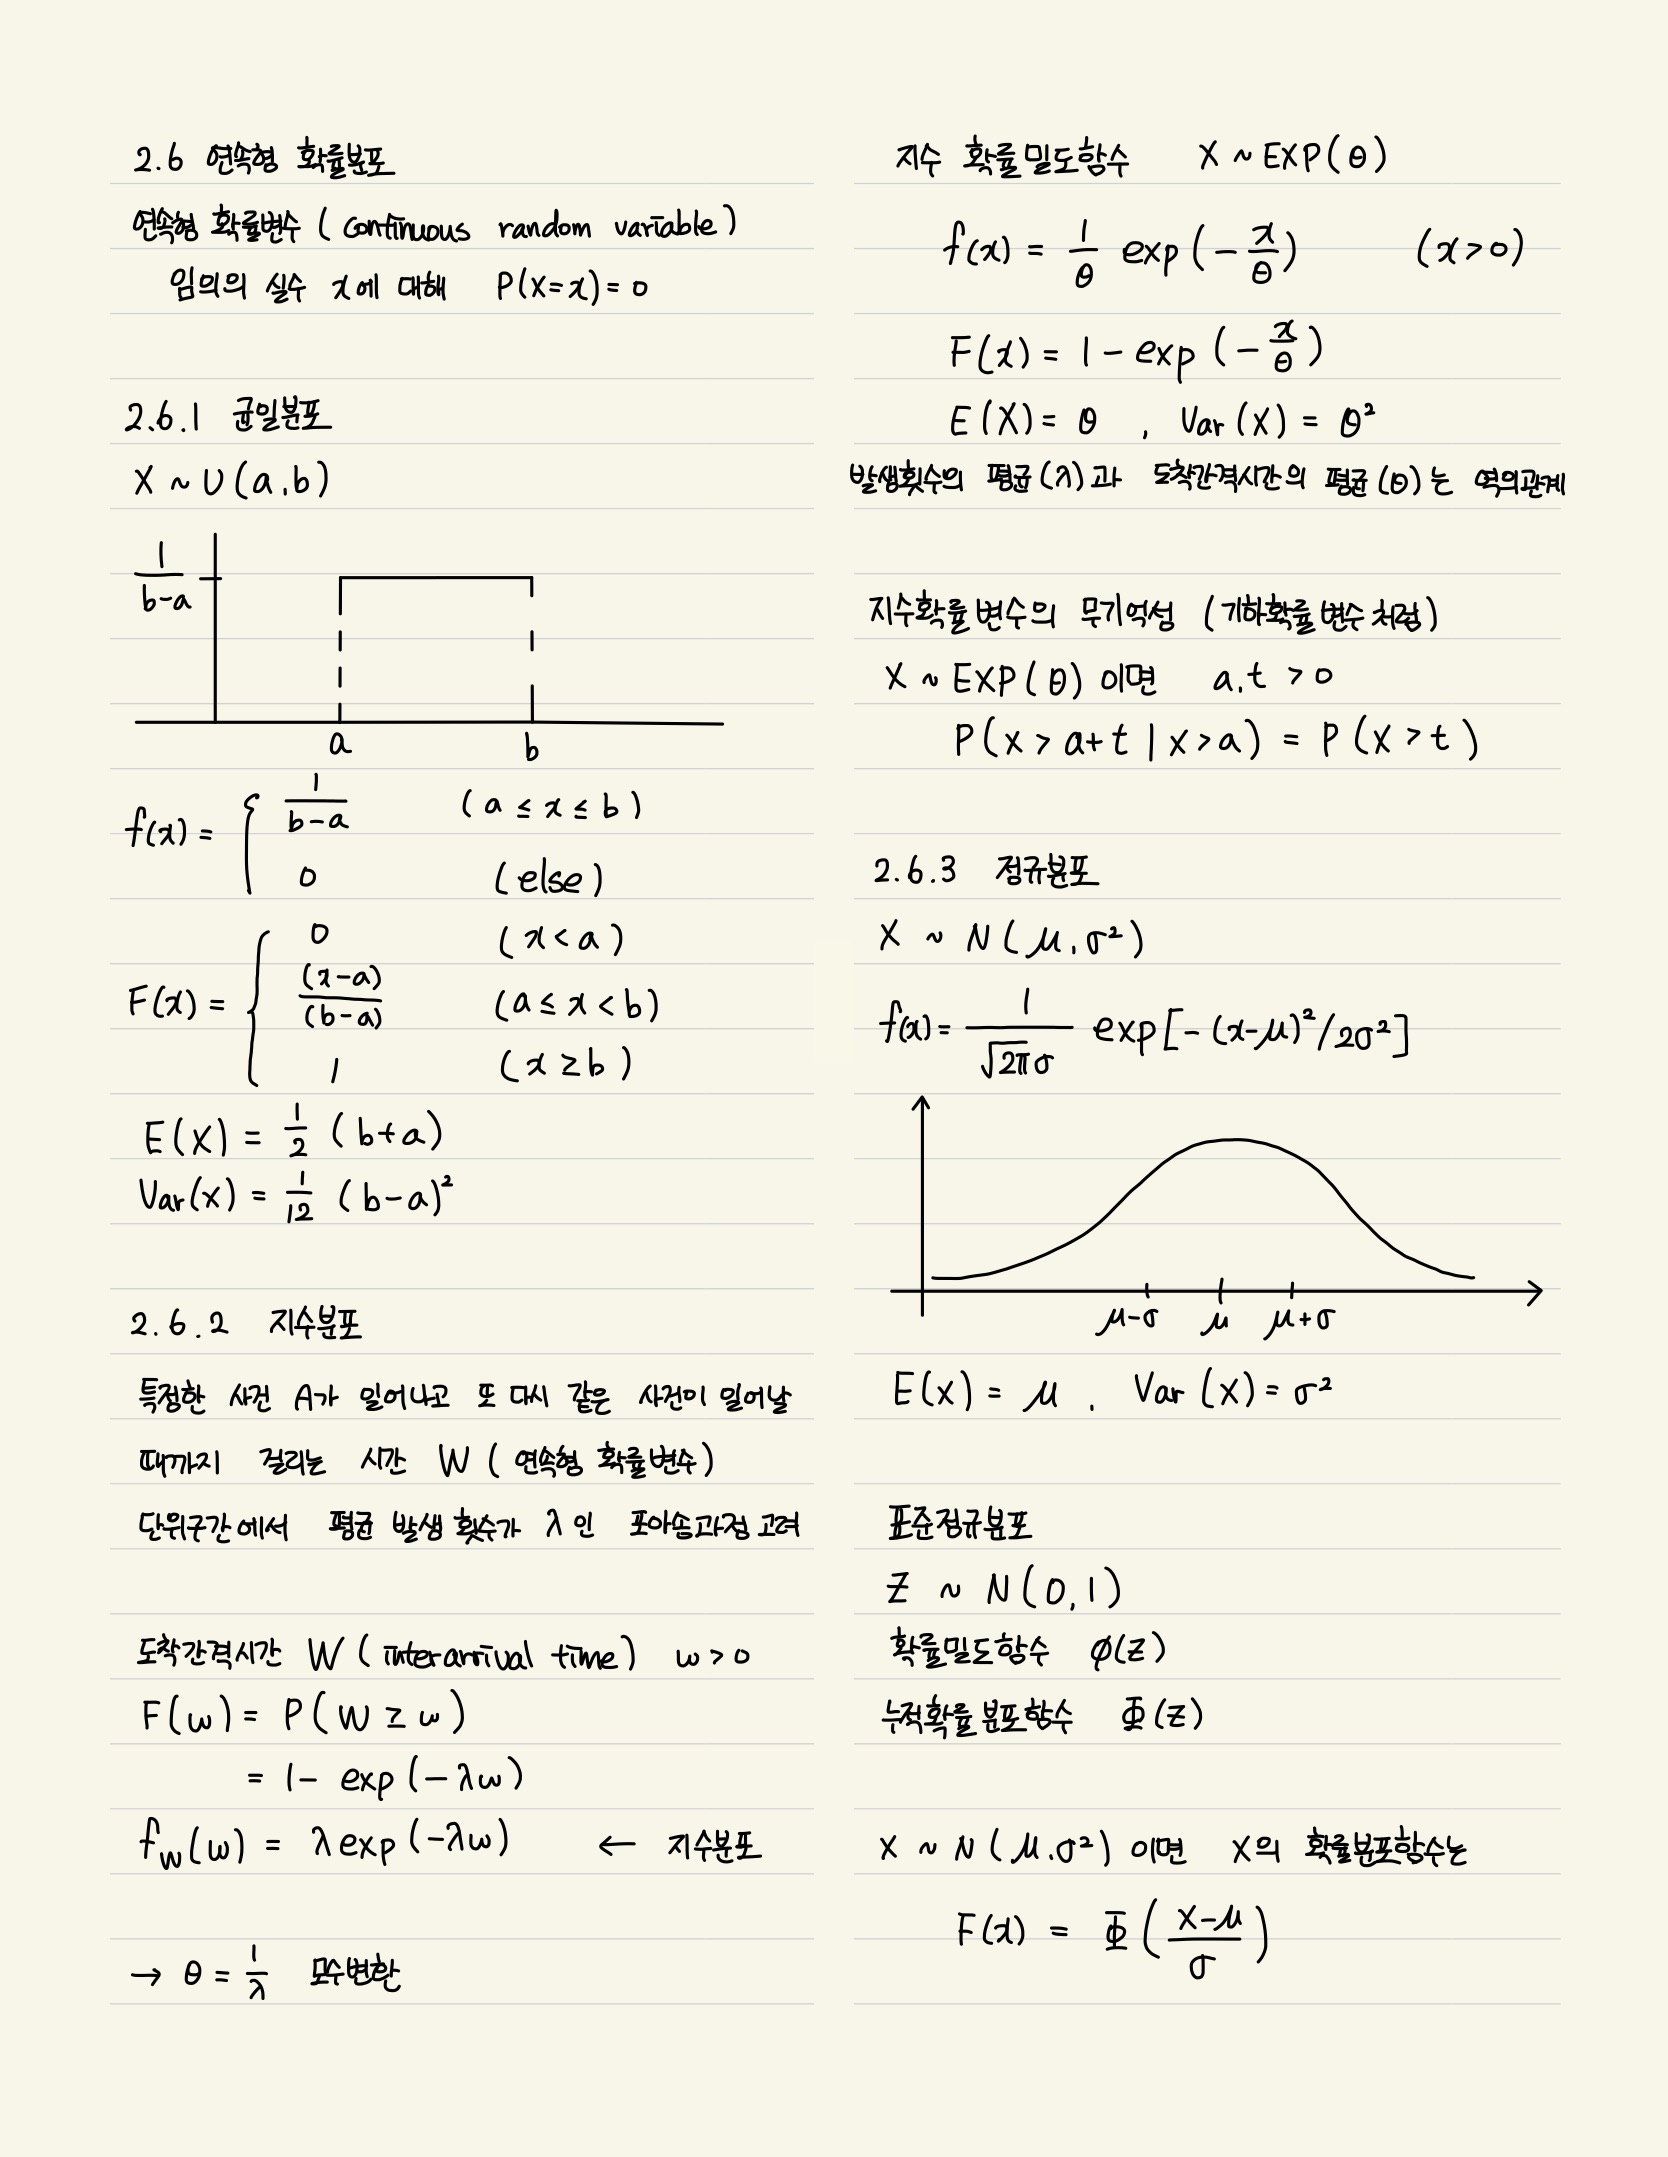 2.6 연속형 확률분포
연속형 확률변수 ( continuous random variable )
임의의 실수 x에 대해 P(X=x) = 0
2.6.1 균일분포
X ~ U(a,b)
1/(b-a)
a b
f(x) = { 1/(b-a) (a ≤ x ≤ b)
0 (else)
F(x) = { 0 (x < a)
(x-a)/(b-a) (a ≤ x < b)
1 (x ≥ b)
E(X) = 1/2 (b+a)
Var(X) = 1/12 (b-a)²
2.6.2 지수분포
특정한 사건 A가 일어나고 또 다시 같은 사건이 일어날
때까지 걸리는 시간 W ( 연속형 확률변수)
단위구간에서 평균 발생 횟수가 λ인 포아송과정 고려
도착간격시간 W ( interarrival time ) w > 0
F(w) = P(W ≥ w)
= 1 - exp(-λw)
f_W(w) = λexp(-λw) ← 지수분포
→ θ = 1/λ 모수변환
지수 확률밀도함수 X ~ EXP(θ)
f(x) = 1/θ exp(-x/θ) (x > 0)
F(x) = 1 - exp(-x/θ)
E(X) = θ , Var(X) = θ²
발생횟수의 평균(λ)과 도착간격시간의 평균(θ)는 역의관계
지수확률변수의 무기억성 (기하확률변수처럼)
X ~ EXP(θ) 이면 a,t > 0
P(X > a+t | X > a) = P(X > t)
2.6.3 정규분포
X ~ N(μ,σ²)
f(x) = 1/(√2π σ) exp[-(x-μ)²/2σ²]
μ-σ μ μ+σ
E(X) = μ , Var(X) = σ²
표준정규분포
Z ~ N(0,1)
확률밀도함수 φ(z)
누적확률분포함수 Φ(z)
X ~ N(μ,σ²) 이면 X의 확률분포함수는
F(x) = Φ((x-μ)/σ)